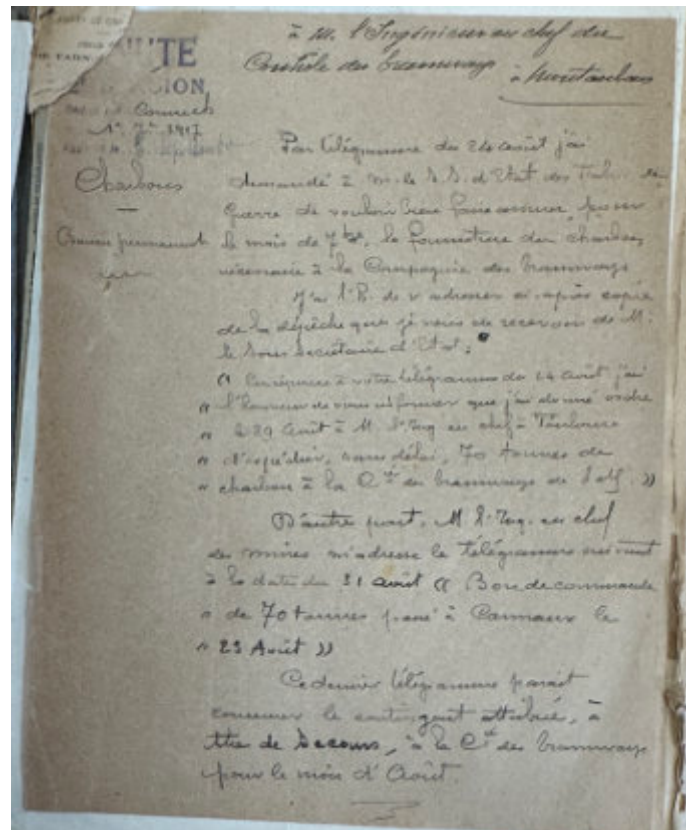 à M. l'Ingénieur en chef du
Contrôle des tramways
à Montauban
MINUTE
Charbons
Par télégramme du 24 août j'ai
demandé à M. le S. S. d'Etat des
guerre de vouloir bien faire assurer, pour
le mois de 7bre, la fourniture du charbon
nécessaire à la Compagnie des tramways
J'ai l'H. de v. adresser ci-après copie
de la dépêche que je viens de recevoir de M.
le Sous Secrétaire d'Etat :
« En réponse à votre télégramme du 24 août j'ai
« l'honneur de vous informer que j'ai donné ordre
« le 29 Août à M. l'Ing en chef à Toulouse
« d'expédier, sans délai, 70 tonnes de
« charbon à la Cie des tramways de »
D'autre part, M. l'Ing. en chef
des mines m'adresse le télégramme suivant
à la date du 31 août « Bon de commande
« de 70 tonnes passé à Carmaux le
« 29 Août »
Ce dernier télégramme parait
concerner le contingent attribué, à
titre de Secours, à la Cie des tramways
pour le mois d'Août.